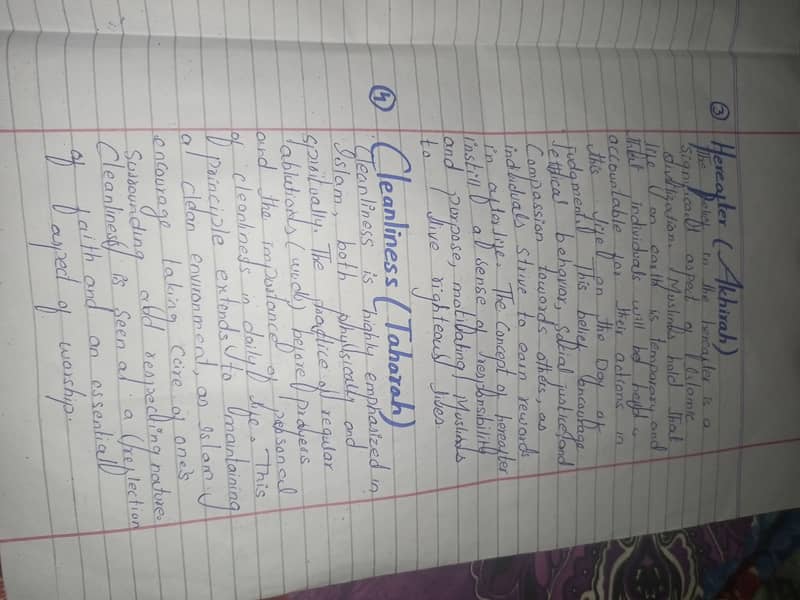 ③ Hereafter (Akhirah)
The belief in the hereafter is a
significant aspect of Islamic
civilization. Muslims hold that
life on earth is temporary and
that individuals will be held
accountable for their actions in
this life on the Day of
judgment. This belief encourage
ethical behavior, social justice, and
Compassion towards others, as
individuals strive to earn rewards
in afterlife. The concept of hereafter
instill a sense of responsibility
and purpose, motivating Muslims
to live righteous lives.
④ Cleanliness (Taharah)
Cleanliness is highly emphasized in
Islam, both physically and
spiritually. The practice of regular
ablutions (wudu) before prayers
and the importance of personal
of cleanliness in daily life. This
principle extends to maintaining
a clean environment, as Islam
encourage taking care of one's
surrounding and respecting nature.
Cleanliness is seen as a reflection
of faith and an essential
aspect of worship.